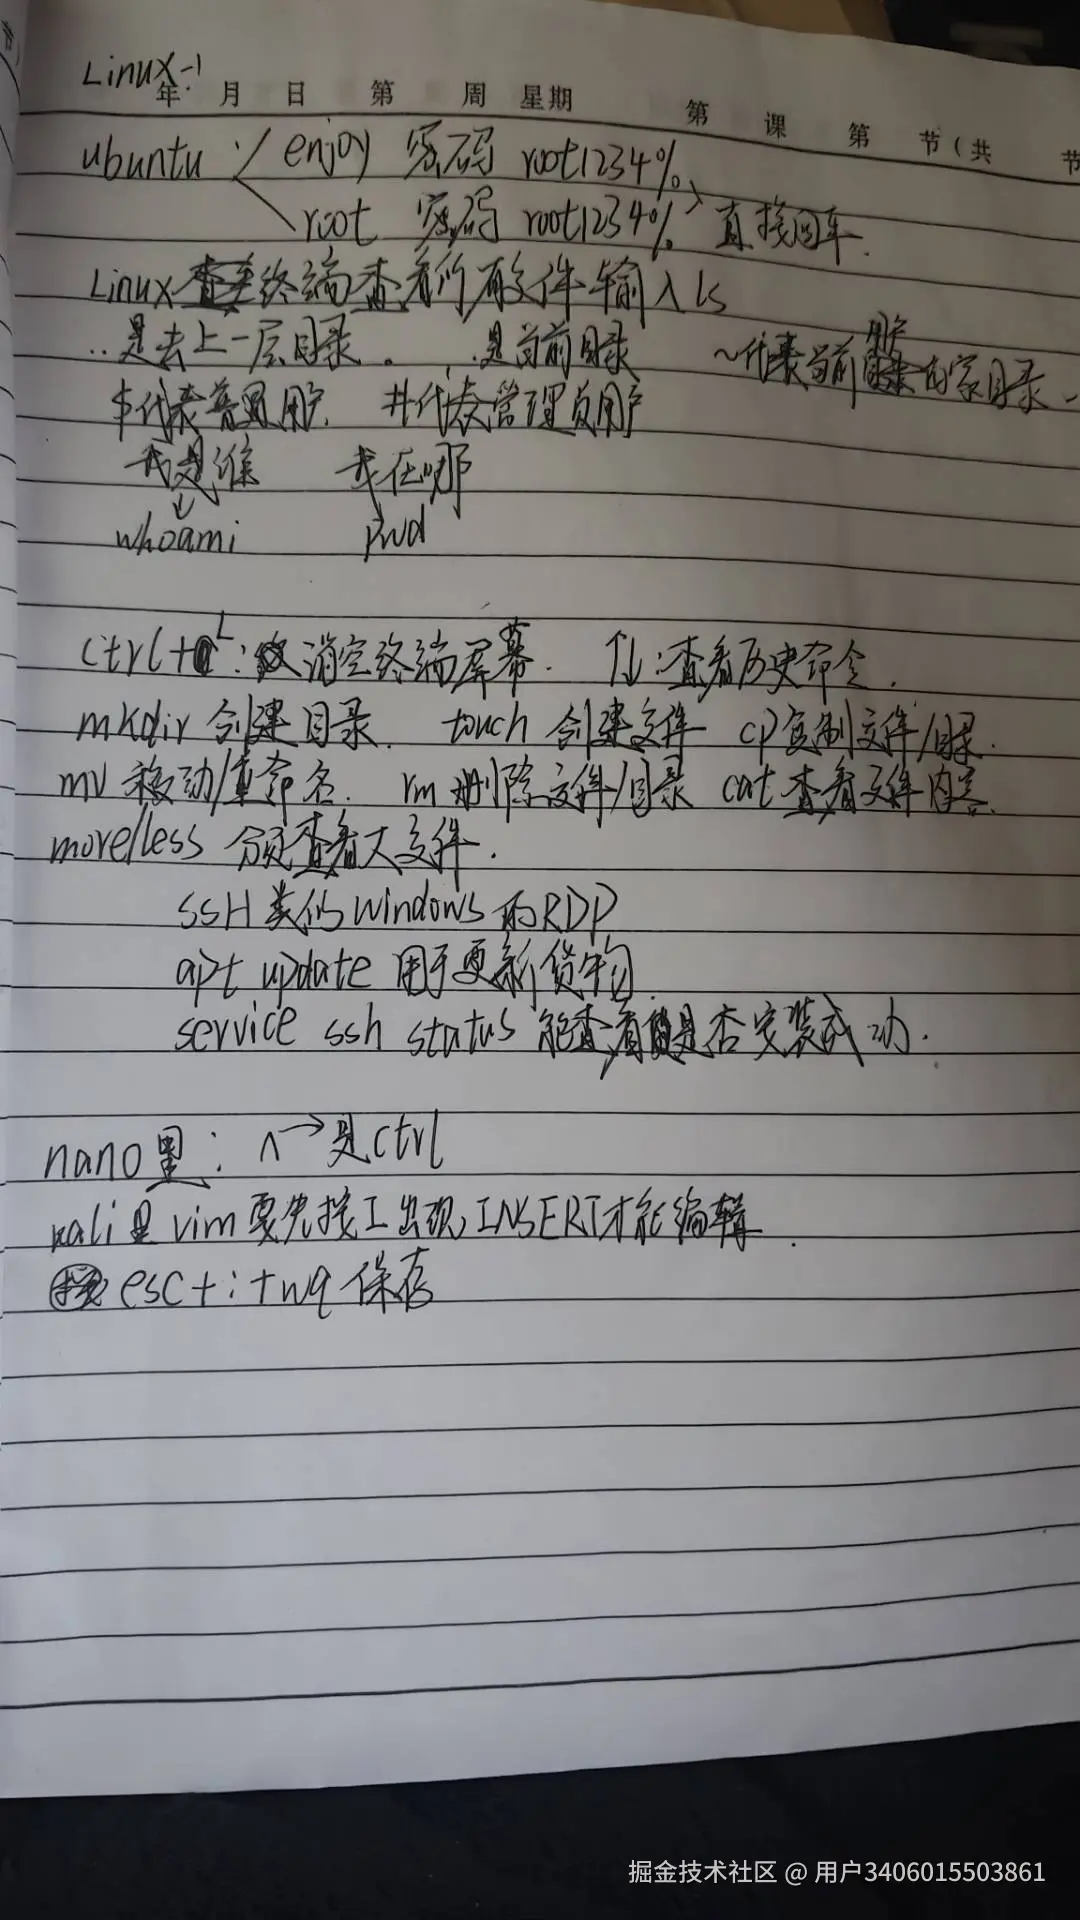 Linux-1
年 月 日 第 周 星期 第 课 第 节(共 节
ubuntu : enjoy 密码 root1234%
root 密码 root1234% 直接回车.
Linux 终端查看所有文件输入ls
..是去上一层目录. .是当前目录 ~代表当前用户的家目录.
$代表普通用户. #代表管理员用户
我是谁 我在哪
whoami pwd
ctrl+L: 清空终端屏幕. ↑↓:查看历史命令.
mkdir 创建目录. touch 创建文件 cp复制文件/目录.
mv 移动/重命名. rm 删除文件/目录 cat 查看文件内容.
more/less 分页查看大文件.
SSH 类似windows的RDP
apt update 用于更新货物.
service ssh status 能查看是否安装成功.
nano里: ^→是ctrl
kali里 vim要先按I出现INSERT才能编辑.
esc+:+wq 保存
掘金技术社区 @ 用户3406015503861